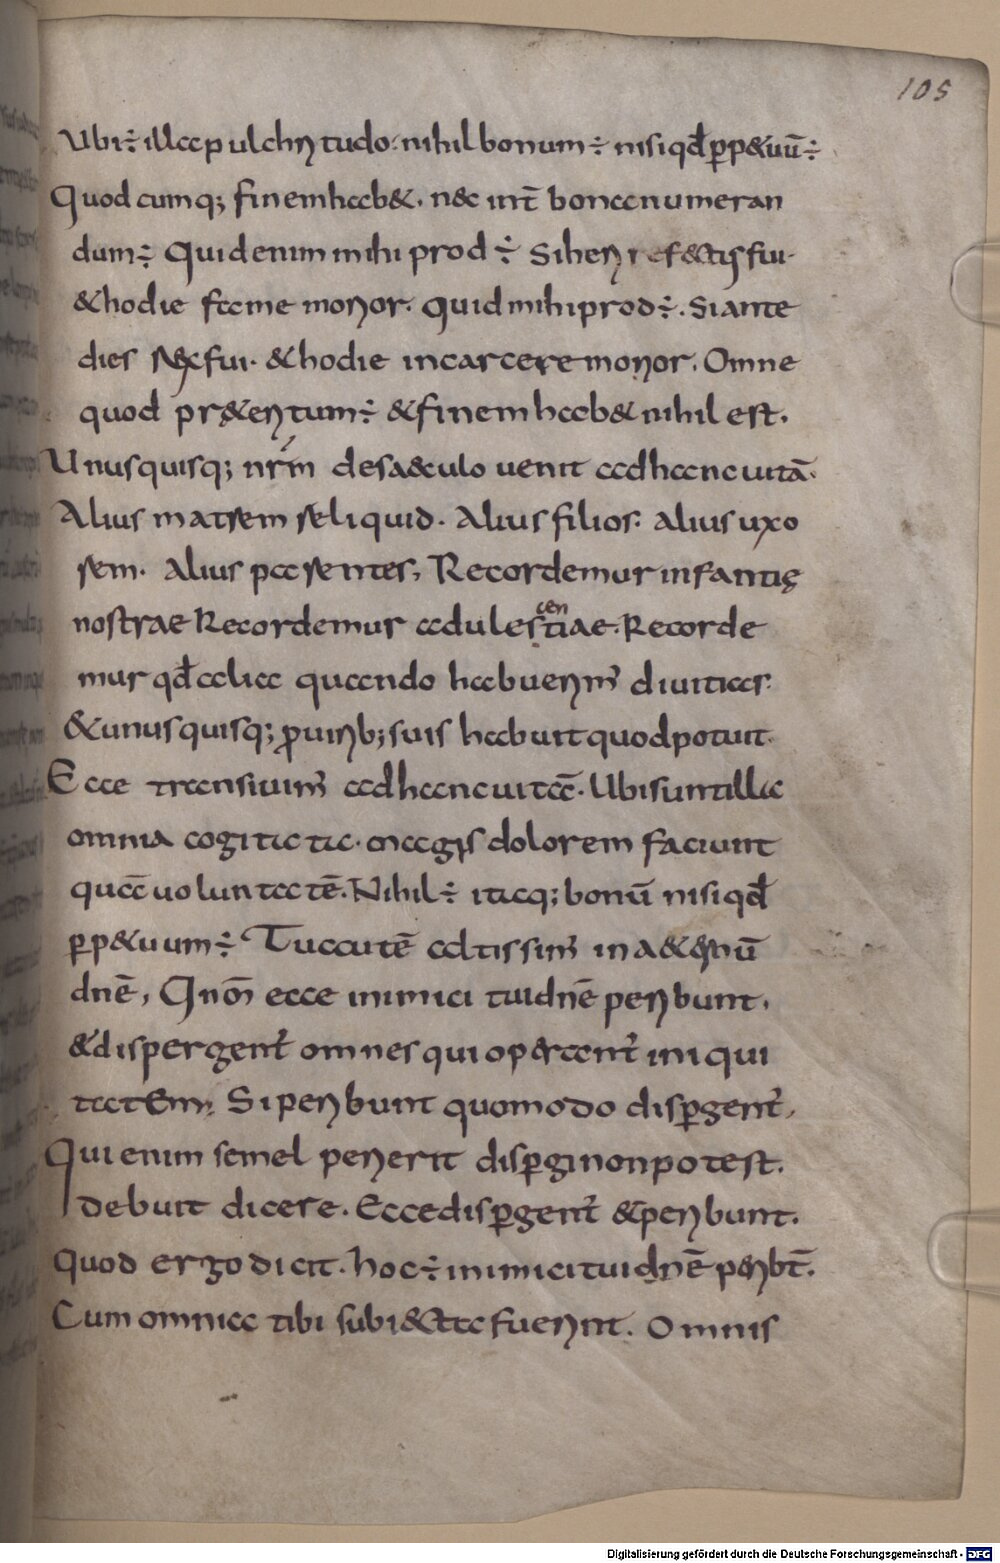 105
Ubi ÷ illa pulchritudo· nihil bonum ÷ nisi qđ ꝑp&uū ÷
Quodcumq; finem hab&· nec int̄ bona numeran
dum ÷ Quid enim mihi prod ÷ Si heri refectus fui·
&hodie fame morior· Quid mihi prod ÷· Si ante
dies rex fui· &hodie in carcere morior· Omne
quod pręteritum ÷ &finem hab& nihil est·
Unusquisq; nr̄m de saeculo uenit ad hanc uitā·
Alius matrem reliquid· Alius filios· alius uxo
rem· Alius parentes, Recordemur infantię
nostrae Recordemur adulescentiae· Recorde
mur qđ aliquando habuerim̄ diuitias·
&unusquisq; ꝓuirib; suis habuit quod potuit·
Ecce transiuim̄ ad hanc uitā· Ubi sunt illa
omnia cogitata· magis dolorem faciunt
quā uoluntatē· Nihil ÷ itaq; bonū nisi qđ
ꝑp&uum ÷ Tu autē altissim̄ in aeternū
dnē, Qnō ecce inimici tui dnē peribunt,
&dispergent̄ omnes qui operant̄ iniqui
tatem; Si peribunt quomodo disꝑgent̄,
Qui enim semel perierit disꝑgi non potest·
debuit dicere· Ecce disꝑgent̄ &peribunt·
Quod ergo dicit· hoc ÷ inimici tui dnē peribt̄·
Cum omnia tibi subiecta fuerint· Omnis
Digitalisierung gefördert durch die Deutsche Forschungsgemeinschaft - DFG